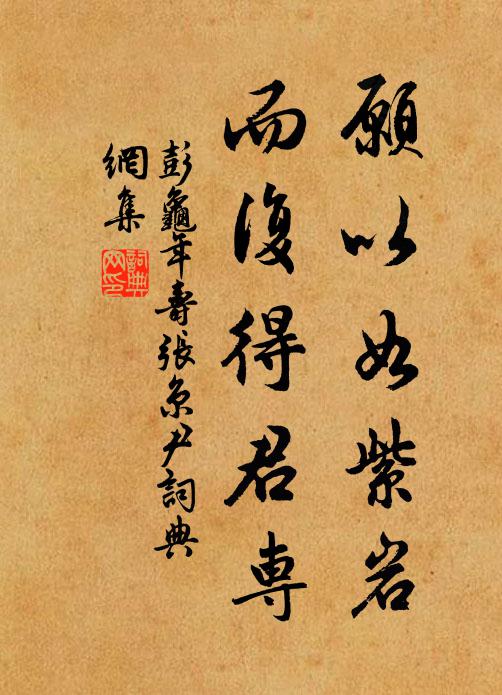 願以如紫岩
而復得君専
彭龜年壽張京尹詞典
網集
詞典網印